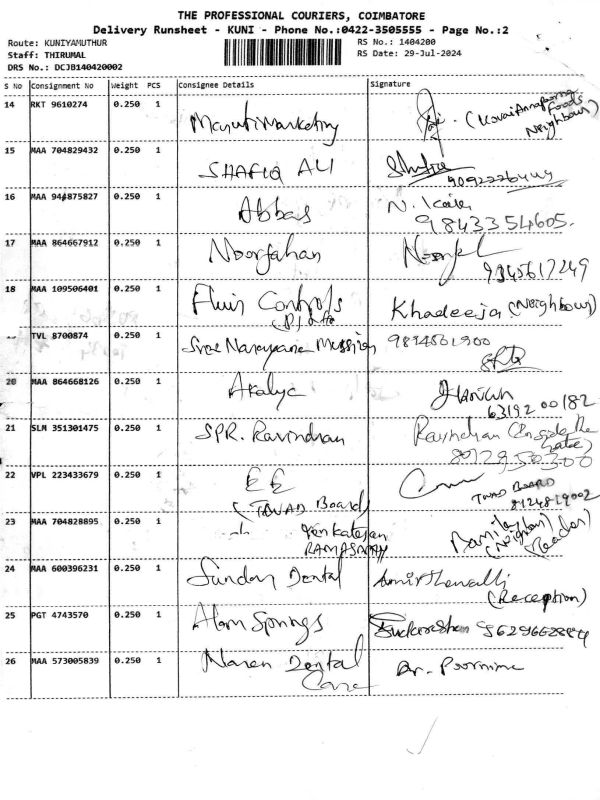 THE PROFESSIONAL COURIERS, COIMBATORE
Delivery Runsheet - KUNI - Phone No.:0422-3505555 - Page No.:2
Route: KUNIYAMUTHUR
RS No.: 1404200
Staff: THIRUMAL
RS Date: 29-Jul-2024
DRS No.: DCJB140420002
S No Consignment No Weight PCS Consignee Details Signature
14 RKT 9610274 0.250 1 Maruti Marketing (KovaiAnnapoorna Foods
Neighbour)
15 MAA 704829432 0.250 1 SHAFIQ ALI
16 MAA 944875827 0.250 1 Abbas N.
98433 54605.
17 MAA 864667912 0.250 1 Noorjahan
9345617249
18 MAA 109506401 0.250 1 Fluin Controls Khadeeja (Neighbour)
(P) Ltd
TVL 8700874 0.250 1 Sree Narayana Mission
20 MAA 864668126 0.250 1 Akalya
63192 00182
21 SLM 351301475 0.250 1 SPR. Ravindran Ravindran (Inside the
gate)
8012950300
22 VPL 223433679 0.250 1 EE
(TWAD Board) TWAD BOARD
8124819002
23 MAA 704828895 0.250 1 Venkatesan
RAMASAMY (Neighbour)
24 MAA 600396231 0.250 1 Sundar Dental Amirthavalli
(Reception)
25 PGT 4743570 0.250 1 Alam Springs
26 MAA 573005839 0.250 1 Naren Dental Dr. Poornima
Care